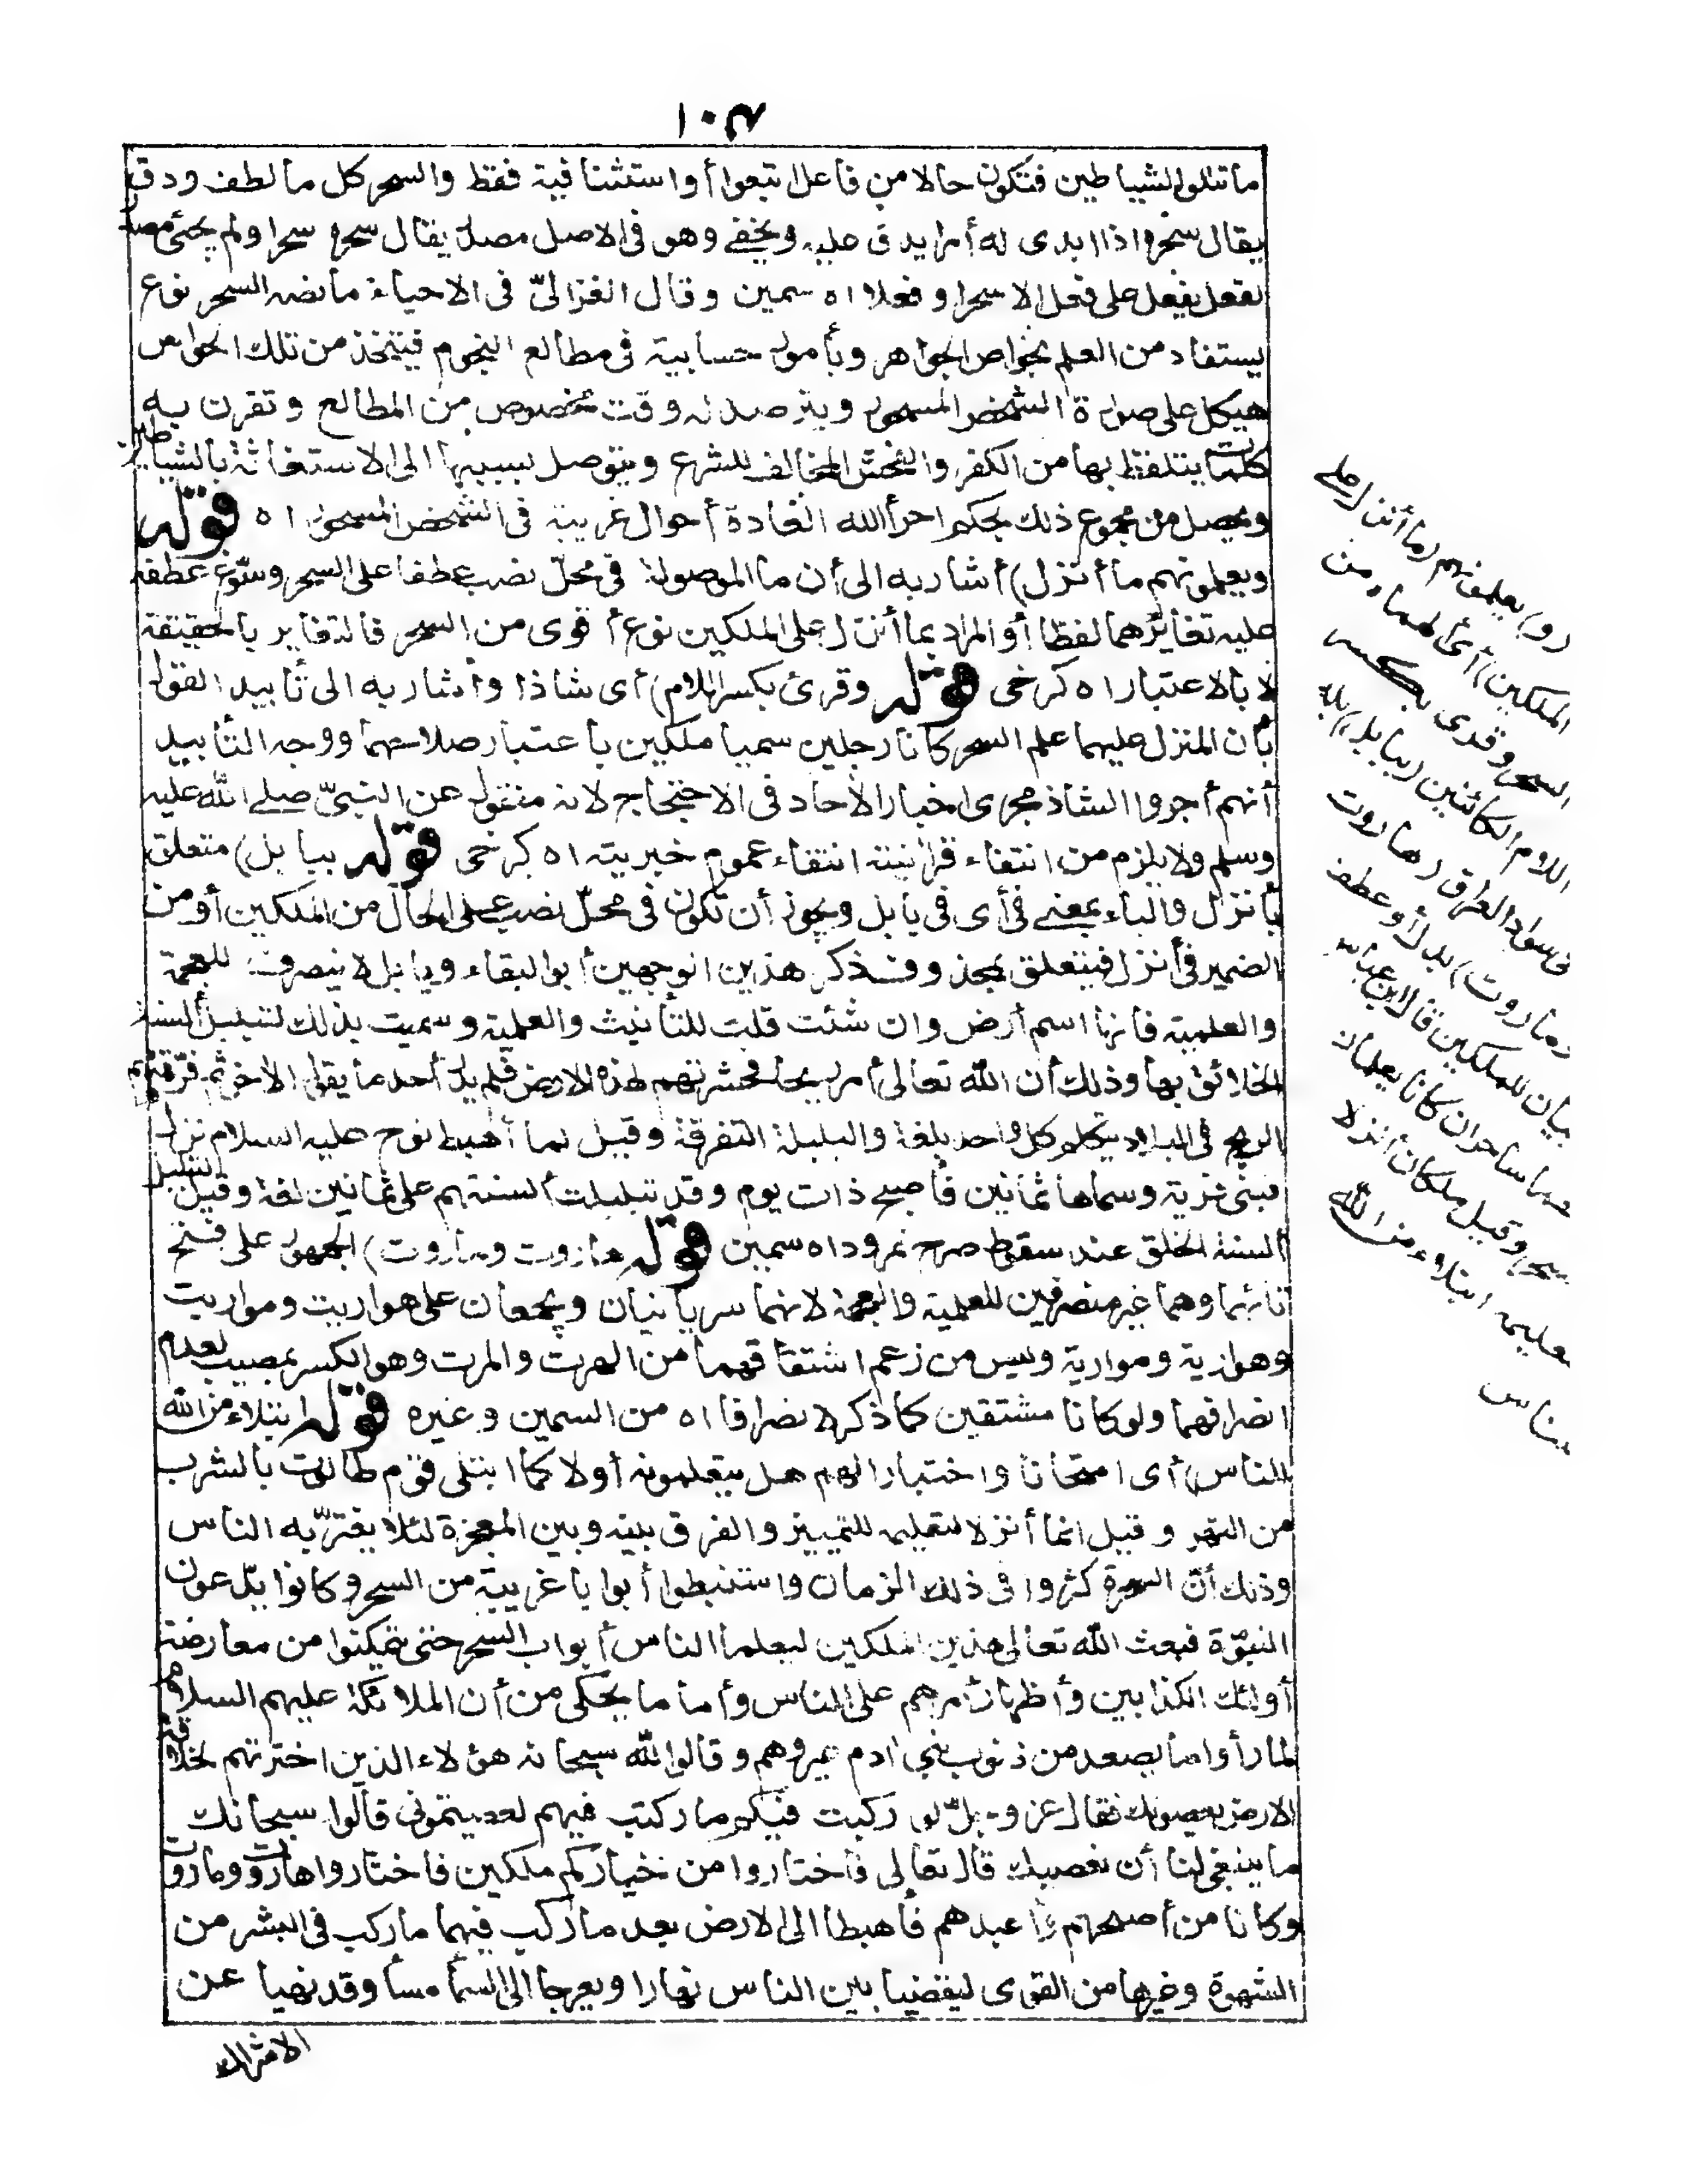 ١٠٣
ما تتلو الشياطين فتكون حالا من فاعل اتبعوا أو استئنافية فقط والسحر كل ما لطف ودق
يقال سحره اذا ابدى له أمرا يدق عليه ويخفى وهو فى الاصل مصدر يقال سحره سحرا ولم يجئ مصدر
لفعل يفعل على فعل الا سحرا وفعلا اه سمين وقال الغزالىّ فى الاحياء ما نصه السحر نوع
يستفاد من العلم بخواص الجواهر وبأمور حسابية فى مطالع النجوم فيتخذ من تلك الخواص
هيكل على صورة الشخص المسحور ويترصد له وقت مخصوص من المطالع وتقرن به
كلمات يتلفظ بها من الكفر والفحش المخالف للشرع ويتوصل بسببها الى الاستغاثة بالشياطين
ويحصل من مجموع ذلك بحكم اجرأ الله العادة أحوال غريبة فى الشخص المسحور اه قوله
ويعلمونهم ما أنزل) أشار به الى أن ما الموصولة فى محلّ نصب عطفا على السحر وسوّغ عطفه
عليه تغايرهما لفظا أو المراد بما أنزل على الملكين نوع أقوى من السحر فالتغاير بالحقيقة
لا بالاعتبار اه كرخى قوله وقرئ بكسر اللام) أى شاذا وأشار به الى تأييد القول
بأن المنزل عليهما علم السحر كانا رجلين سميا ملكين باعتبار صلاحهما ووجه التأييد
أنهم أجروا الشاذ مجرى اخبار الأحاد فى الاحتجاج لانه منقول عن النبىّ صلى الله عليه
وسلم ولا يلزم من انتفاء قرانيته انتفاء عموم خبريته اه كرخى قوله ببابل) متعلق
بأنزل والباء بمعنى فى أى فى بابل ويجوز أن تكون فى محلّ نصب على الحال من الملكين أو من
الضمير فى أنزل فيتعلق بمحذوف ذكر هذين الوجهين أبو البقاء وبابل لا ينصرف للعجمة
والعلمية فانها اسم أرض وان شئت قلت للتأنيث والعلمية وسميت بذلك لتبلبل ألسنة
الخلائق بها وذلك أن الله تعالى أمر ريحا فحشرتهم لهذه الارض فلم يدر أحد ما يقول الاخر ثم فرّقتهم
الريح فى البلاد يتكلم كل واحد بلغة والبلبلة التفرقة وقيل لما أهبط نوح عليه السلام نزل
فبنى قرية وسماها ثمانين فأصبح ذات يوم وقد تبلبلت ألسنتهم على ثمانين لغة وقيل لتبلبل
ألسنة الخلق عند سقوط صرح نمرود اه سمين قوله هاروت وماروت) الجمهور على فتح
تائهما وهما غير منصرفين للعلمية والعجمة لانهما سريانيان ويجمعان على هواريت ومواريت
وهوارية وموارية وليس من زعم اشتقاقهما من الهرت والمرت وهو الكسر بمصيب لعدم
انصرافهما ولو كانا مشتقين كما ذكر لانصرفا اه من السمين وغيره قوله ابتلاء من الله
للناس) أى امتحانا واختبارا لهم هل يتعلمونه أولا كما ابتلى قوم طالوت بالشرب
من النهر وقيل انما أنزلا لتعليمه للتمييز والفرق بينه وبين المعجزة لئلا يغترّ به الناس
وذلك أنّ السحرة كثروا فى ذلك الزمان واستنبطوا أبوابا غريبة من السحر وكانوا يدّعون
النبوّة فبعث الله تعالى هذين الملكين ليعلما الناس أبواب السحر حتى يتمكنوا من معارضة
أولئك الكذابين وأظهار أمرهم على الناس وأما ما يحكى من أن الملائكة عليهم السلام
لما رأوا ما يصعد من ذنوب بنى ادم عيروهم وقالوا لله سبحانه هؤلاء الذين اخترتهم لخلافة
الارض يعصونك فقال عز وجلّ لو ركبت فيكم ما ركبت فيهم لعصيتمونى قالوا سبحانك
ما ينبغى لنا أن نعصيك قال تعالى فاختاروا من خياركم ملكين فاختاروا هاروت وماروت
وكانا من أصلحهم وأعبدهم فأهبطا الى الارض بعد ما ركب فيهما ما ركب فى البشر من
الشهوة وغيرها من القوى ليقضيا بين الناس نهارا ويعرجا الى السمأ مسأ وقد نهيا عن
الاشراك
(و) يعلمونهم (ما أنزل على
الملكين) أى ألهماه من
السحر وقرى بكسر
اللام الكائنين (ببابل) بلد
فى سواد العراق (هاروت
وماروت) بدل أو عطف
بيان للملكين قال ابن عباس
هما ساحران كانا يعلمان
السحر وقيل ملكان أنزلا
لتعليمه ابتلاء من الله
للناس